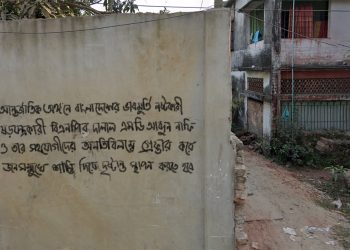 আন্তর্জাতিক অঙ্গনে বাংলাদেশের ভাবমূর্তি নষ্টকারী
ষড়যন্ত্রকারী বিএনপির দালাল এমডি আবদুল নাফি
ও তার সহযোগীদের অনতিবিলম্বে গ্রেপ্তার করে
জনসম্মুখে শাস্তি দিয়ে দৃষ্টান্ত স্থাপন করতে হবে